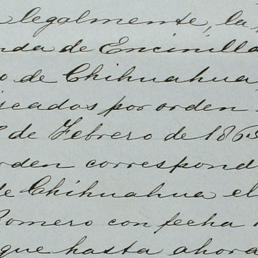 legalmente, la
nda de Encinilla
o de Chihuahua
iseados por orden
de Febrero de 186
rden correspond
de Chihuahua el
Romero con fecha
que hasta ahora